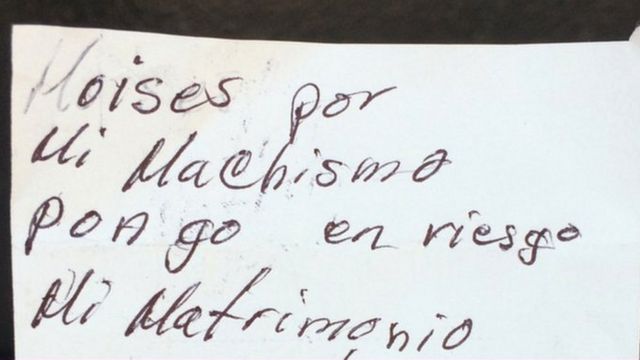 Moises por
Mi Machismo
pongo en riesgo
Mi Matrimonio